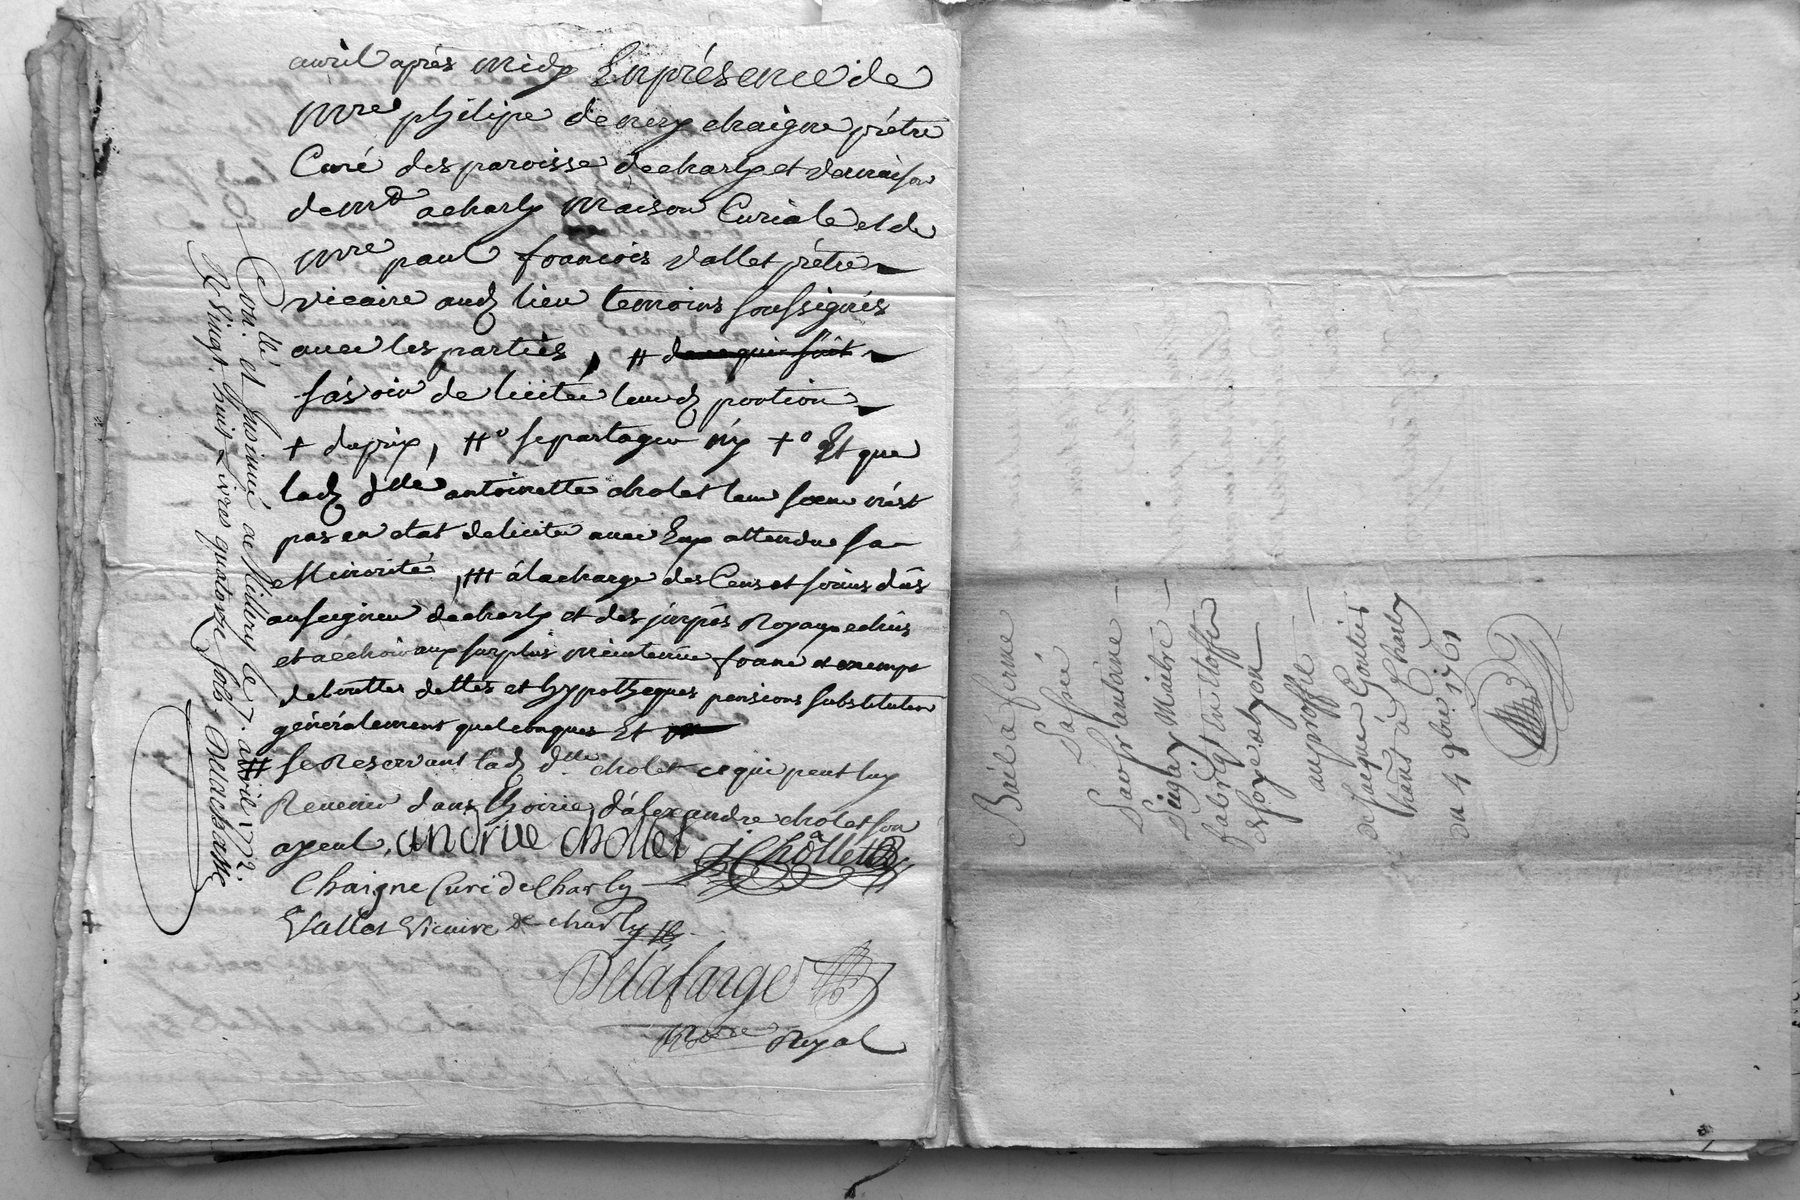 avril après midy En présence de
mre philipe denery chaigne prêtre
Curé des paroisse de charly et vernaison
demt a charly maison Curiale et de
mre paul francois vallet prêtre
vicaire aud lieu temoins soussignés
avec les parties, #
sásvoir de liciter leursd portion
+ du prix, #° se partager ny +° Et que
lad dlle antoinette cholet leur sœur nést
pas en etat de liciter avec Eux attendu sa
Minorité, ### á la charge des Cens et servis dûs
au seigneur de charly et des jmpôs Royaux echus
et a échoir au surplus maintenüe franc et exempt
de touttes dettes et hypotheques pensions substitution
généralement quelconques Et
# se Reservant lad dlle cholet ce qui peut luy
Revenir dans lhoirie d'alexandre cholet son
ayeul, andrue chollet J Chollet
Chaigne Curé de Charly
Vallet Vicaire de charly
Delafarge
nore Royal
Con.llé et Insinué a Millery le 7. avril 1772
R Vingt huit Livres quatorze sols
Bail á ferme
Passé
Par sr antoine
Dugley Maitre
fabriqt En Etoffe
de soye a lyon
au proffit
de jaques Goutier
habitt á Charly
du 4 9bre 1761